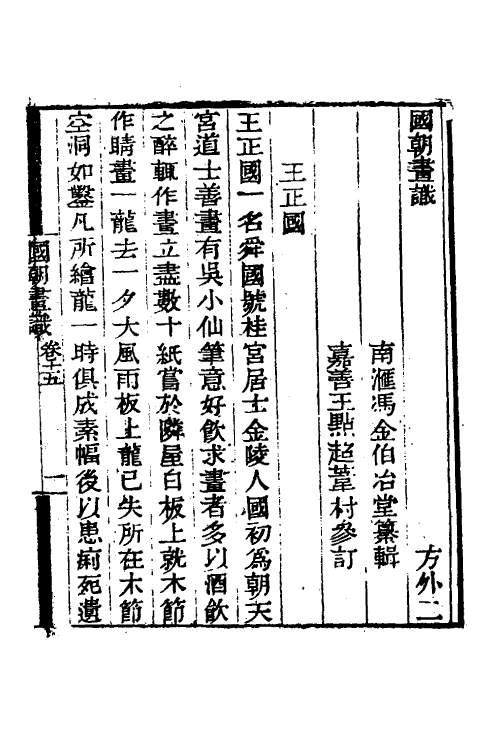 國朝畫識　方外二
南滙馮金伯冶堂纂輯
嘉善王㸃超葦村參訂
王正國
王正國一名舜國號桂宮居士金陵人國初爲朝天
宮道士善畫有吳小仙筆意好飲求畫者多以酒飲
之醉輒作畫立盡數十紙嘗於隣屋白板上就木節
作睛畫一龍去一夕大風雨板上龍已失所在木節
空洞如鑿凡所繪龍一時俱成素幅後以患痢死遺
國朝畫識　卷十五　一